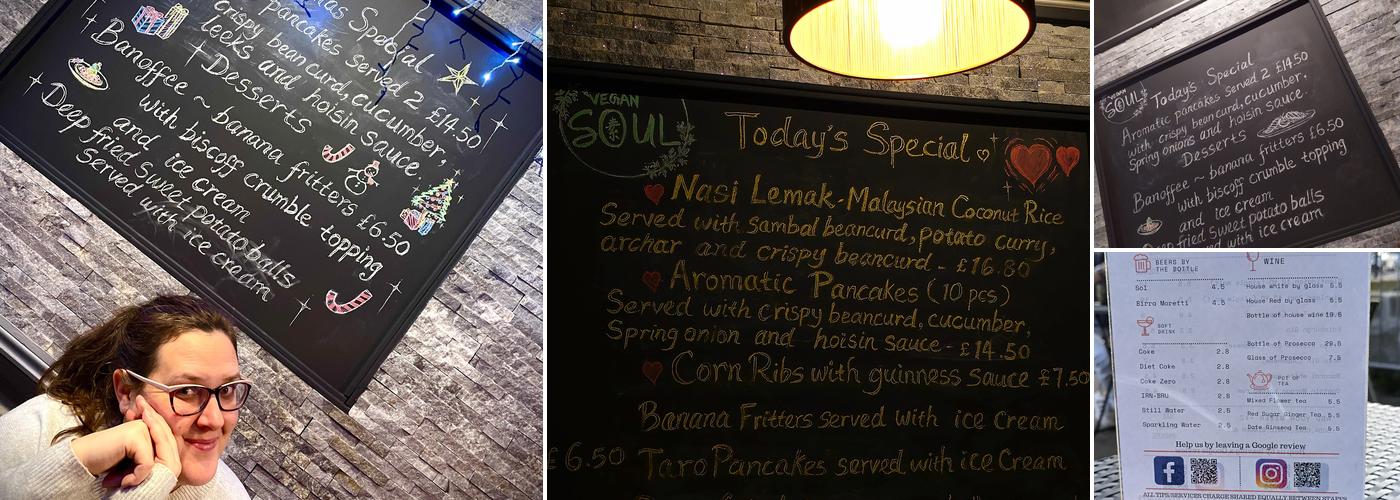 as Special
pancakes served 2 £14.50
crispy bean curd, cucumber,
leeks and hoisin sauce.
Desserts
Banoffee ~ banana fritters £6.50
with biscoff crumble topping
and ice cream
Deep fried Sweet potato balls
Served with ice cream
VEGAN
SOUL
Today's Special
Nasi Lemak-Malaysian Coconut Rice
Served with sambal beancurd, potato curry,
archar and crispy beancurd - £16.80
Aromatic Pancakes (10 pcs)
Served with crispy beancurd, cucumber,
Spring onion and hoisin sauce - £14.50
Corn Ribs with guinness sauce £7.50
Banana Fritters served with ice Cream
£6.50 Taro Pancakes served with ice Cream
SOUL
Today's Special
Aromatic pancakes served 2 £14.50
with crispy bean curd, cucumber,
Spring onions and hoisin sauce.
Desserts
Banoffee ~ banana fritters £6.50
with biscoff crumble topping
and ice cream
Deep fried Sweet potato balls
ed with ice cream
BEERS BY
THE BOTTLE
Sol 4.5
Birra Moretti 4.5
SOFT
DRINK
Coke 2.8
Diet Coke 2.8
Coke Zero 2.8
IRN-BRU 2.8
Still Water 2.5
Sparkling Water 2.5
WINE
House white by glass 5.5
House Red by glass 5.5
Bottle of house wine 19.5
Bottle of Prosecco 29.5
Glass of Prosecco 7.5
POT OF
TEA
Mixed Flower tea 5.5
Red Sugar Ginger Tea 5.5
Date Ginseng Tea 5.5
Help us by leaving a Google review
ALL TIPS/SERVICES CHARGE SHARED EQUALLY BETWEEN STAFF